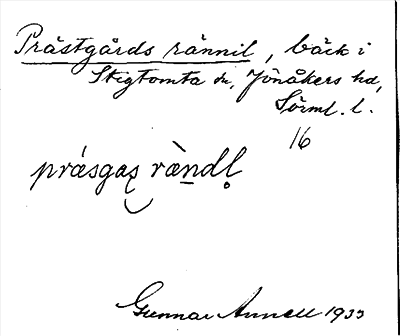 Prästgårds rännil, bäck i
Stigtomta sn, Jönåkers hd,
Sörml. l.
16
prásgaʂ rὰndḷ
Gunnar Annell 1933